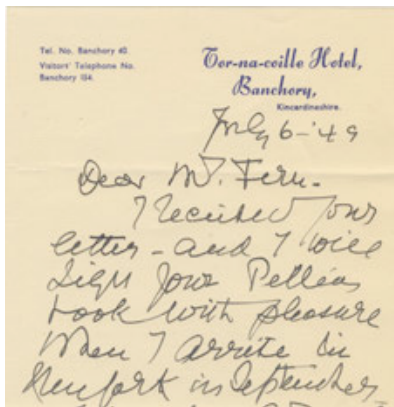 Tel. No. Banchory 40.
Visitors' Telephone No.
Banchory 134.
Tor-na-coille Hotel,
Banchory,
Kincardineshire.
July 6-'49
Dear Mr. Fern-
I received your
letter - and I will
sign your Pelléas
book with pleasure
when I arrive in
New York in September